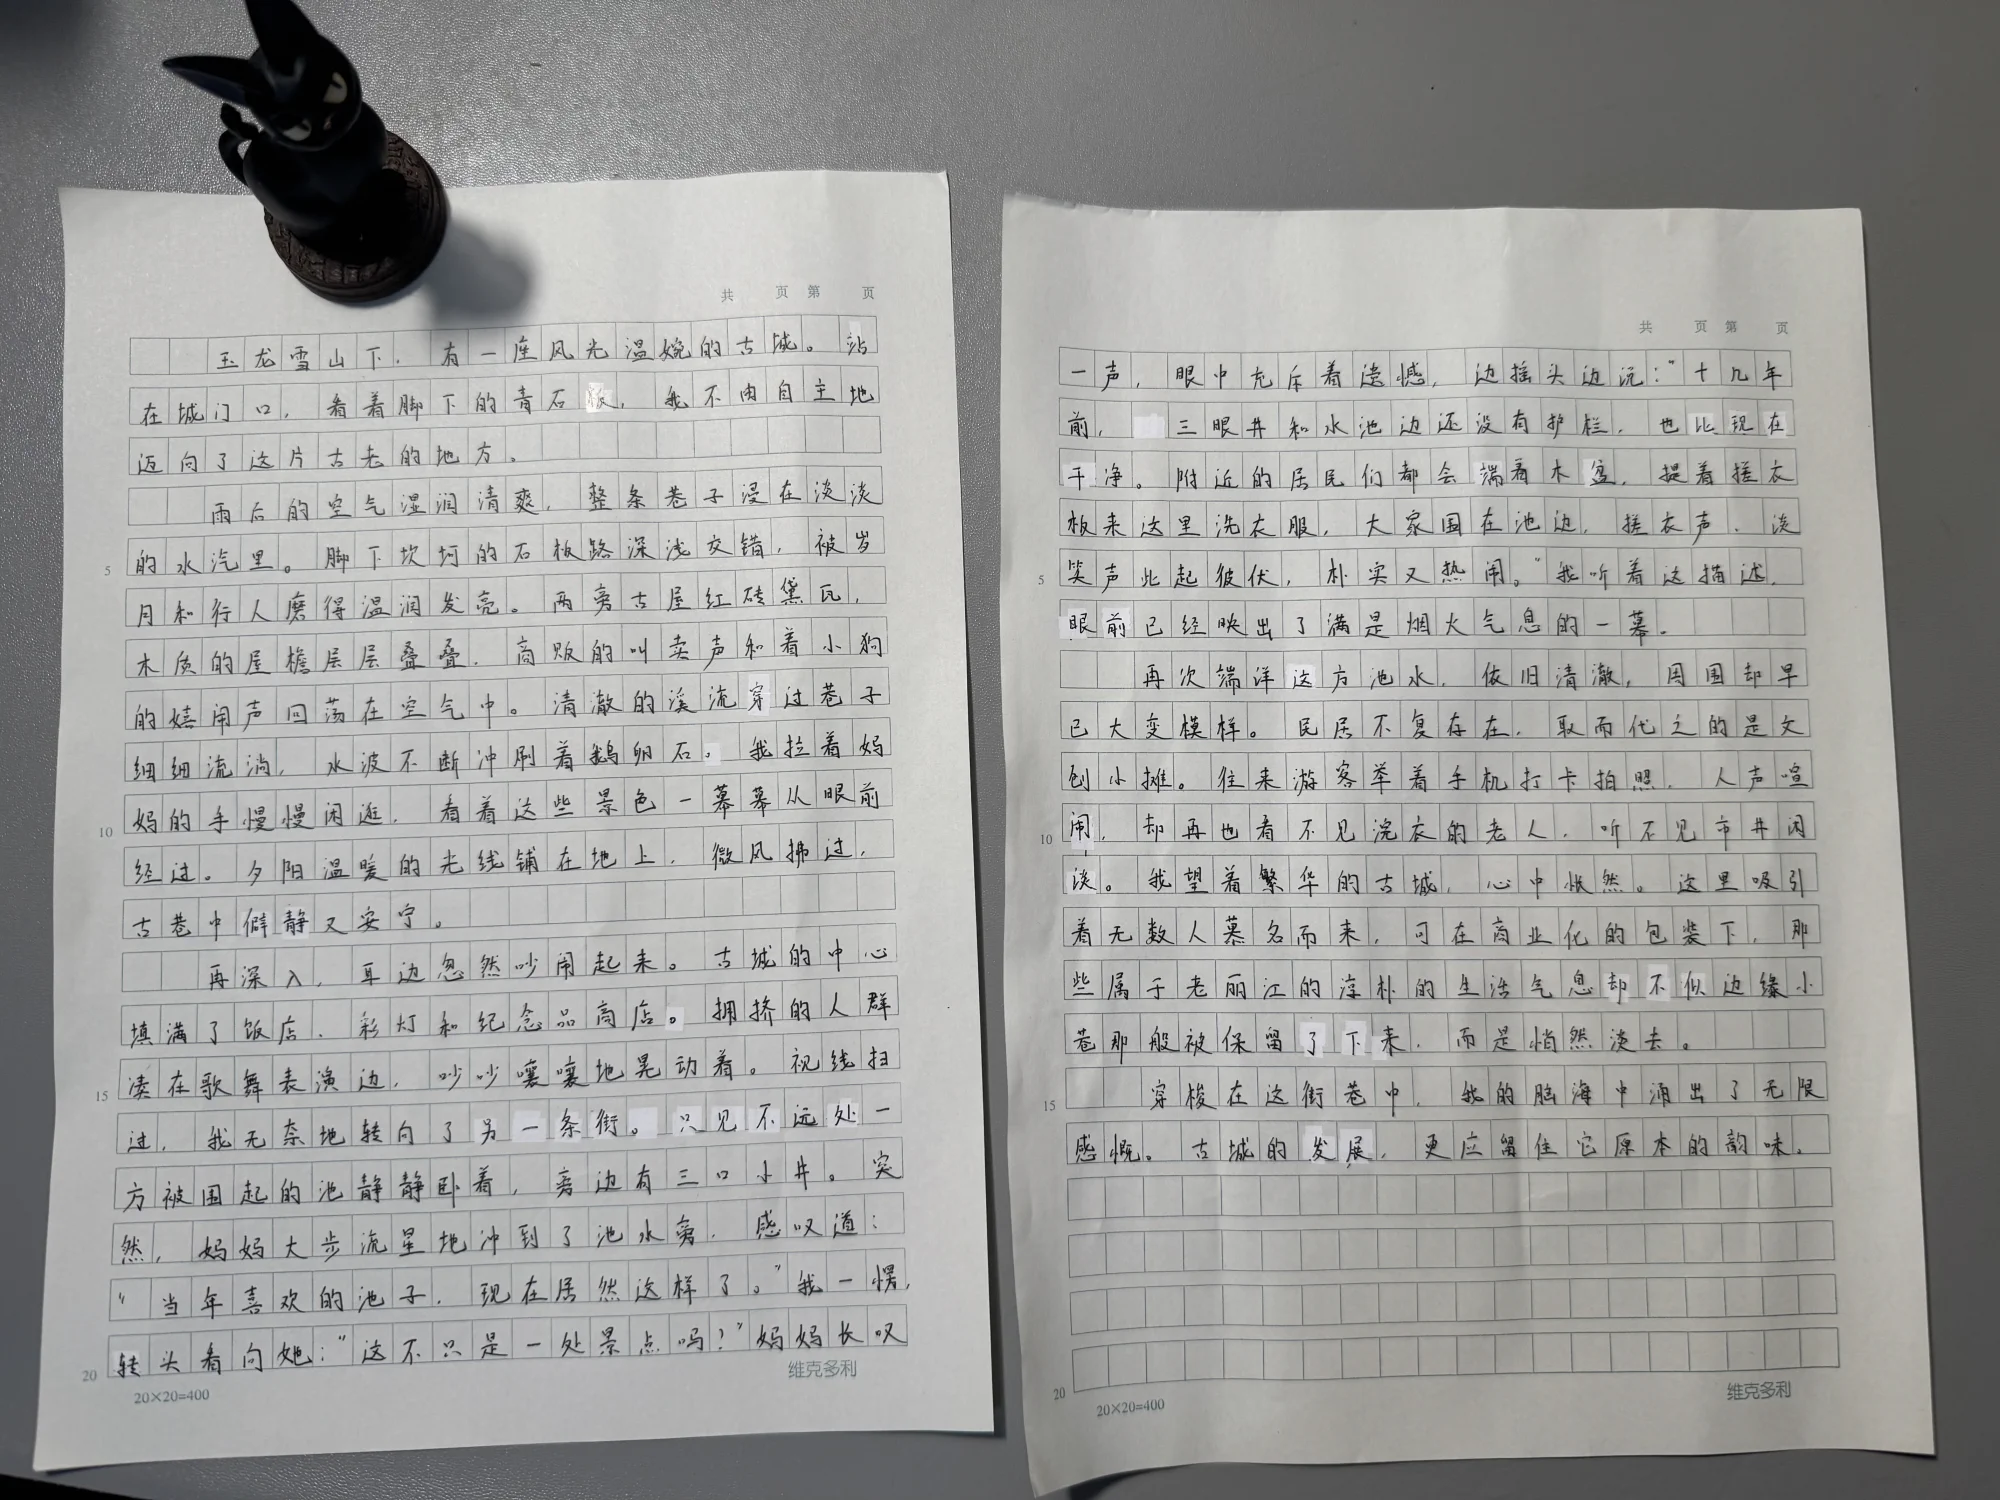 共 页 第 页
玉龙雪山下，有一座风光温婉的古城。站
在城门口，看着脚下的青石板，我不由自主地
迈向了这片古老的地方。
雨后的空气湿润清爽，整条巷子浸在淡淡
的水汽里。脚下坎坷的石板路深浅交错，被岁
5
月和行人磨得温润发亮。两旁古屋红砖黛瓦，
木质的屋檐层层叠叠，商贩的叫卖声和着小狗
的嬉闹声回荡在空气中。清澈的溪流穿过巷子
细细流淌，水波不断冲刷着鹅卵石。我拉着妈
妈的手慢慢闲逛，看着这些景色一幕幕从眼前
10
经过。夕阳温暖的光线铺在地上，微风拂过，
古巷中僻静又安宁。
再深入，耳边忽然吵闹起来。古城的中心
填满了饭店、彩灯和纪念品商店。拥挤的人群
凑在歌舞表演边，吵吵嚷嚷地晃动着。视线扫
15
过，我无奈地转向了另一条街。只见不远处一
方被围起的池静静卧着，旁边有三口小井。突
然，妈妈大步流星地冲到了池水旁，感叹道：
“当年喜欢的池子，现在居然这样了。”我一愣，
转头看向她：“这不只是一处景点吗？”妈妈长叹
20
20×20=400
维克多利
共 页 第 页
一声，眼中充斥着遗憾，边摇头边说：“十几年
前，三眼井和水池边还没有护栏，也比现在
干净。附近的居民们都会端着木盆，提着搓衣
板来这里洗衣服，大家围在池边，搓衣声、谈
笑声此起彼伏，朴实又热闹。”我听着这描述，
5
眼前已经映出了满是烟火气息的一幕。
再次端详这方池水，依旧清澈，周围却早
已大变模样。民居不复存在，取而代之的是文
创小摊。往来游客举着手机打卡拍照，人声喧
闹，却再也看不见浣衣的老人，听不见市井闲
10
谈。我望着繁华的古城，心中怅然。这里吸引
着无数人慕名而来，可在商业化的包装下，那
些属于老丽江的淳朴的生活气息却不似边缘小
巷那般被保留了下来，而是悄然淡去。
穿梭在这街巷中，我的脑海中涌出了无限
15
感慨。古城的发展，更应留住它原本的韵味。
20
20×20=400
维克多利